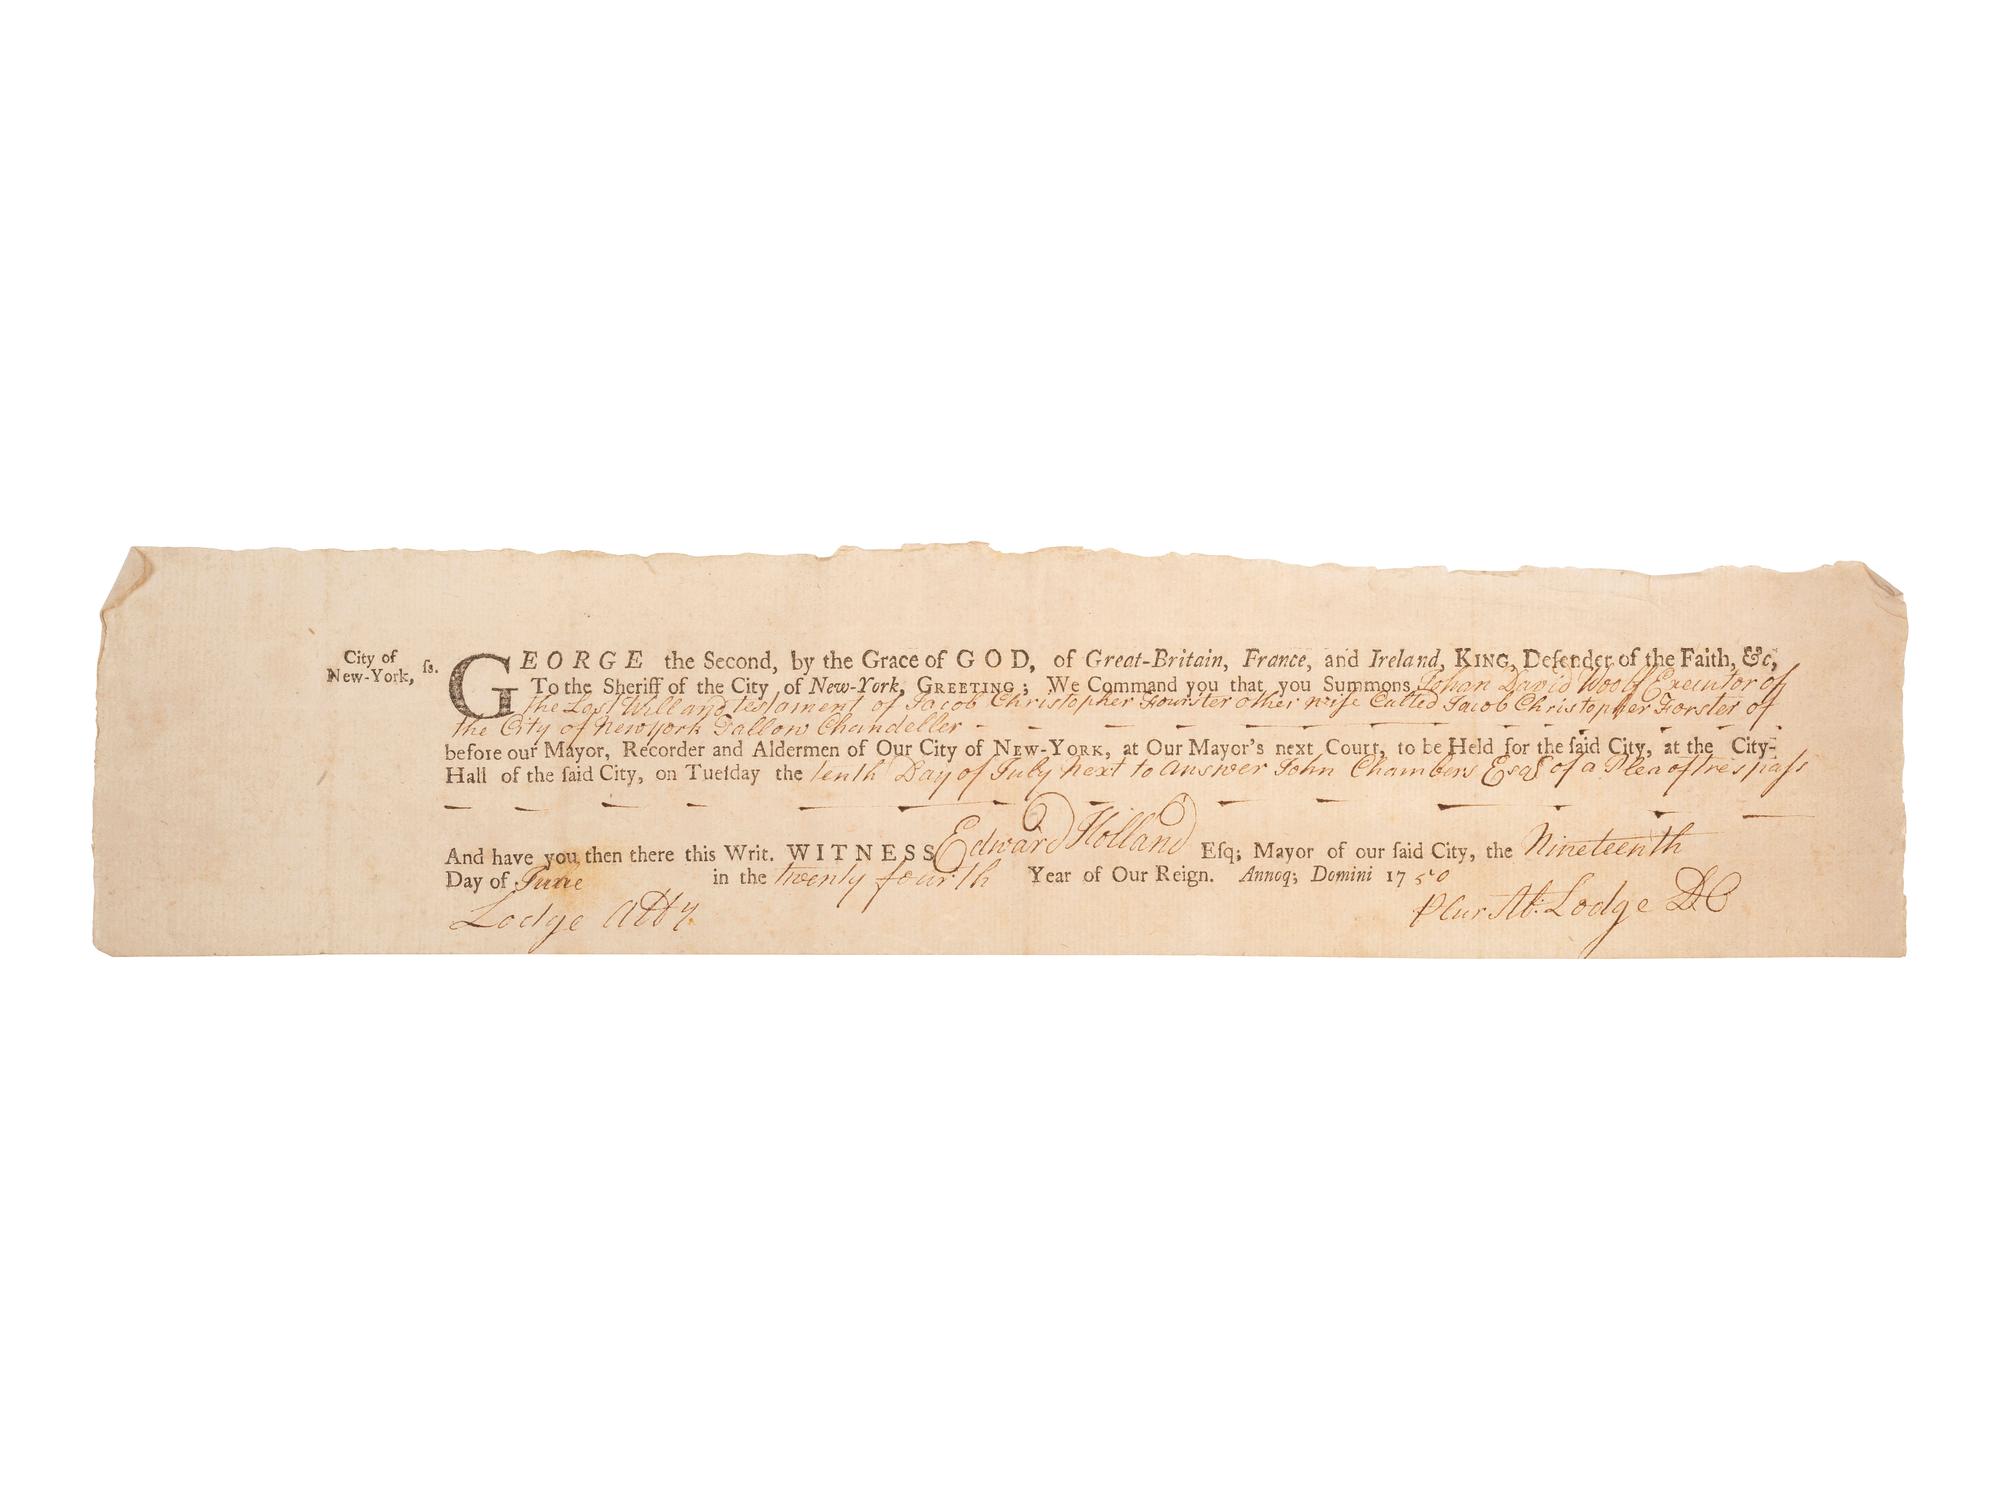 City of
New-York, ſs.
GEORGE the Second, by the Grace of GOD, of Great-Britain, France, and Ireland, KING, Defender of the Faith, &c,
To the Sheriff of the City of New-York, GREETING; We Command you that you Summons Johan David Woolf Executor of
the Last Will and testament of Jacob Christopher Fourster other wise Called Jacob Christopher Forster of
the City of New york Tallow Chandeller
before our Mayor, Recorder and Aldermen of Our City of NEW-YORK, at Our Mayor's next Court, to be Held for the ſaid City, at the City-
Hall of the ſaid City, on Tueſday the tenth Day of July next to answer John Chambers Esqr of a Plea of trespaſs
And have you then there this Writ. WITNESS Edward Holland Eſq; Mayor of our ſaid City, the Nineteenth
Day of June in the twenty fourth Year of Our Reign. Annoq; Domini 1750
Lodge Atty
P Cur Ab: Lodge DC